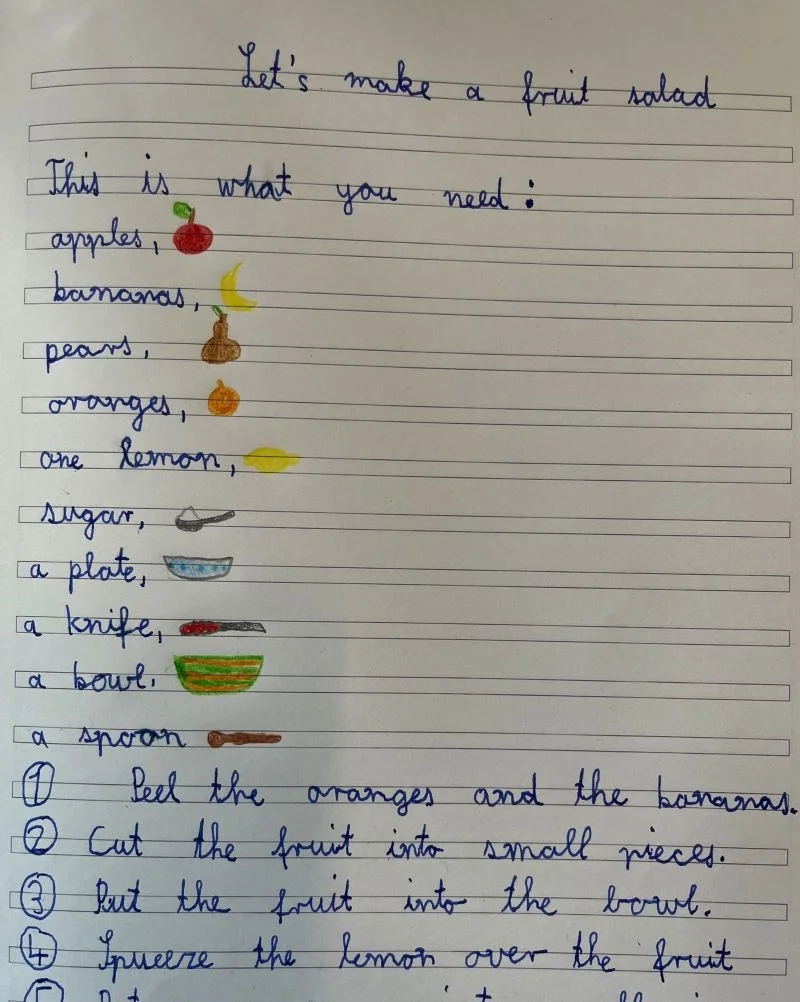 Let's make a fruit salad
This is what you need:
apples,
bananas,
pears,
oranges,
one lemon,
sugar,
a plate,
a knife,
a bowl.
a spoon
1 Peel the oranges and the bananas.
2 Cut the fruit into small pieces.
3 Put the fruit into the bowl.
4 Squeeze the lemon over the fruit
5